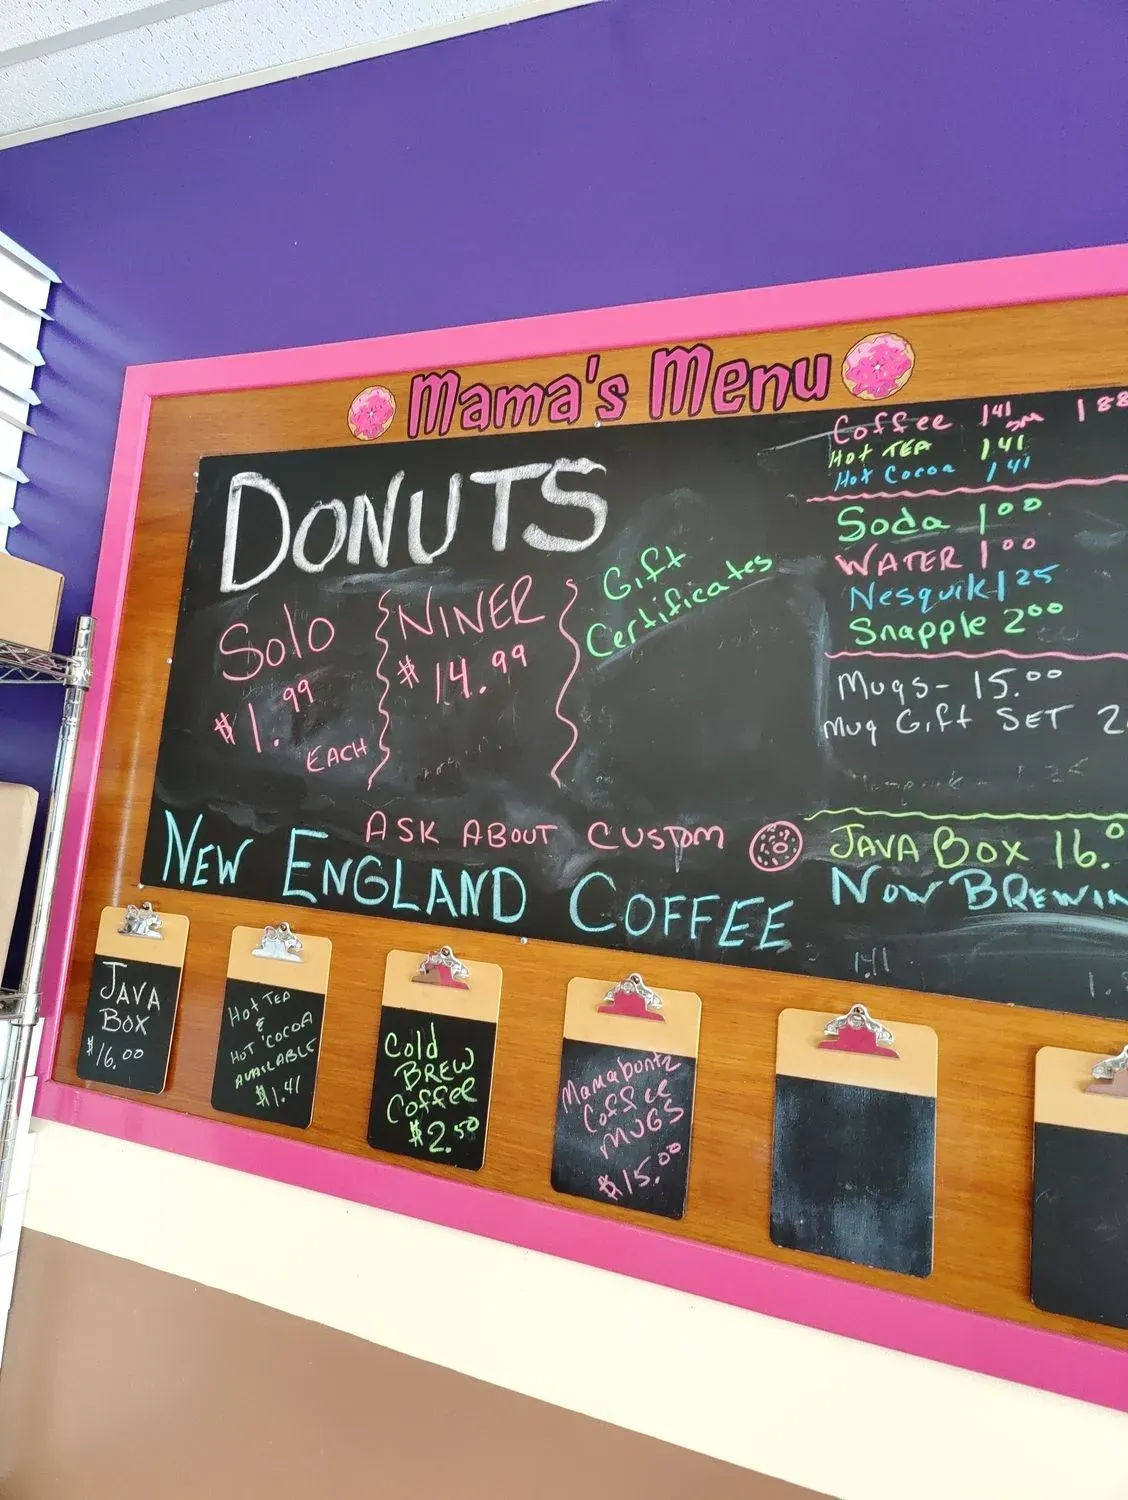 Mama's Menu
DONUTS
Solo
$1.99
EACH
NINER
$14.99
Gift
Certificates
ASK ABOUT CUSTOM
NEW ENGLAND COFFEE
Coffee 141 sm 188
Hot TEA 141
Hot Cocoa 141
Soda 1.00
WATER 1.00
Nesquik 1.25
Snapple 2.00
Mugs- 15.00
Mug Gift SET
JAVA BOX 16.0
NOW BREWIN
1.41
JAVA
BOX
$16.00
Hot TEA
&
Hot COCOA
AVAILABLE
$1.41
Cold
BREW
Coffee
$2.50
Mamabontz
Coffee
MUGS
$15.00